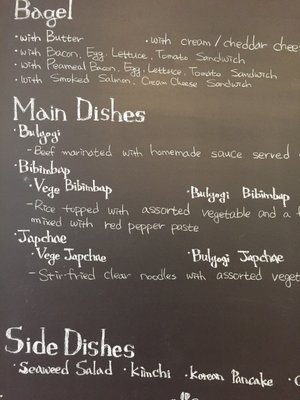 Bagel
• with Butter • with cream / cheddar chee
• with Bacon, Egg, Lettuce, Tomato Sandwich
• with Peameal Bacon, Egg, Lettuce, Tomato Sandwich
• with Smoked Salmon, Cream Cheese Sandwich
Main Dishes
• Bulgogi
- Beef marinated with homemade sauce served
• Bibimbap
• Vege Bibimbap • Bulgogi Bibimbap
- Rice topped with assorted vegetable and a f
mixed with red pepper paste
• Japchae
• Vege Japchae • Bulgogi Japchae
- Stir-fried clear noodles with assorted veget
Side Dishes
• Seaweed Salad • Kimchi • Korean Pancake •